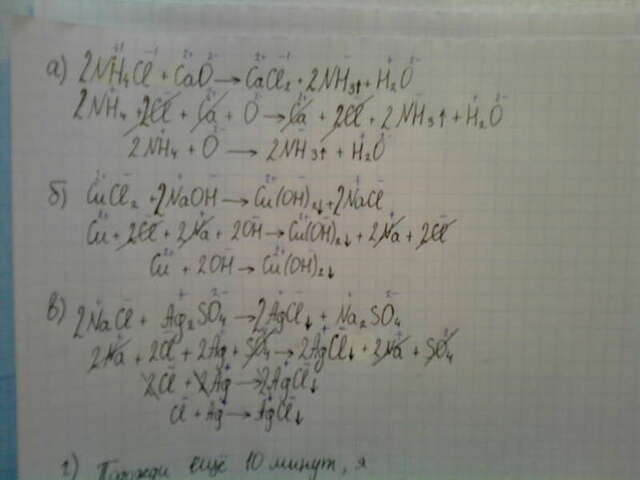 а) 2NH₄⁺Cl⁻ + Ca²⁺O²⁻ → Ca²⁺Cl₂⁻ + 2NH₃↑ + H₂⁺O²⁻
2NH₄⁺ + 2Cl⁻ + Ca²⁺ + O²⁻ → Ca²⁺ + 2Cl⁻ + 2NH₃↑ + H₂⁺O²⁻
2NH₄⁺ + O²⁻ → 2NH₃↑ + H₂⁺O²⁻
б) Cu²⁺Cl₂⁻ + 2Na⁺OH⁻ → Cu²⁺(OH)₂⁻↓ + 2Na⁺Cl⁻
Cu²⁺ + 2Cl⁻ + 2Na⁺ + 2OH⁻ → Cu²⁺(OH)₂⁻↓ + 2Na⁺ + 2Cl⁻
Cu²⁺ + 2OH⁻ → Cu²⁺(OH)₂⁻↓
в) 2Na⁺Cl⁻ + Ag₂⁺SO₄²⁻ → 2Ag⁺Cl⁻↓ + Na₂⁺SO₄²⁻
2Na⁺ + 2Cl⁻ + 2Ag⁺ + SO₄²⁻ → 2Ag⁺Cl⁻↓ + 2Na⁺ + SO₄²⁻
2Cl⁻ + 2Ag⁺ → 2Ag⁺Cl⁻↓
Cl⁻ + Ag⁺ → Ag⁺Cl⁻↓
г) Подожди ещё 10 минут, я